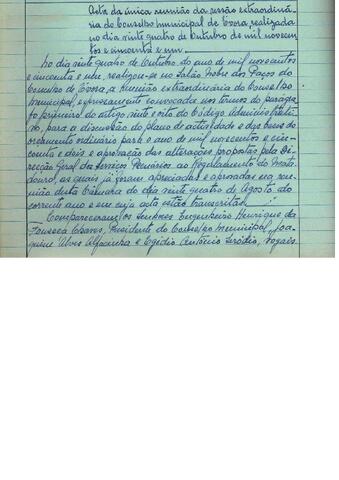 Acta da única reunião da sessão extraordiná-
ria do Conselho municipal de Évora, realizada
no dia vinte quatro de Outubro de mil novecen-
tos e cincoenta e um.
No dia vinte quatro de Outubro do ano de mil novecentos
e cincoenta e um realizou-se no Salão Nobre dos Paços do
Concelho de Évora, a reunião extraordinária do Conselho
Municipal, expressamente convocada nos termos do parágra-
fo primeiro do artigo vinte e oito do Código Administrati-
vo, para a discussão do plano de actividade e das bases do
orçamento ordinário para o ano de mil novecentos e cin-
coenta e dois e aprovação das alterações propostas pela Di-
recção Geral dos Serviços Pecuários ao Regulamento do Mata-
douro, as quais já foram apreciadas e aprovadas na reu-
nião desta Câmara do dia vinte quatro de Agosto do
corrente ano e em cuja acta estão transcritas.
Compareceram os Senhores Engenheiro Henrique da
Fonseca Chaves, Presidente do Conselho Municipal, Joa-
quim Alves Alfacinha e Egídio António Serôdio, vogais